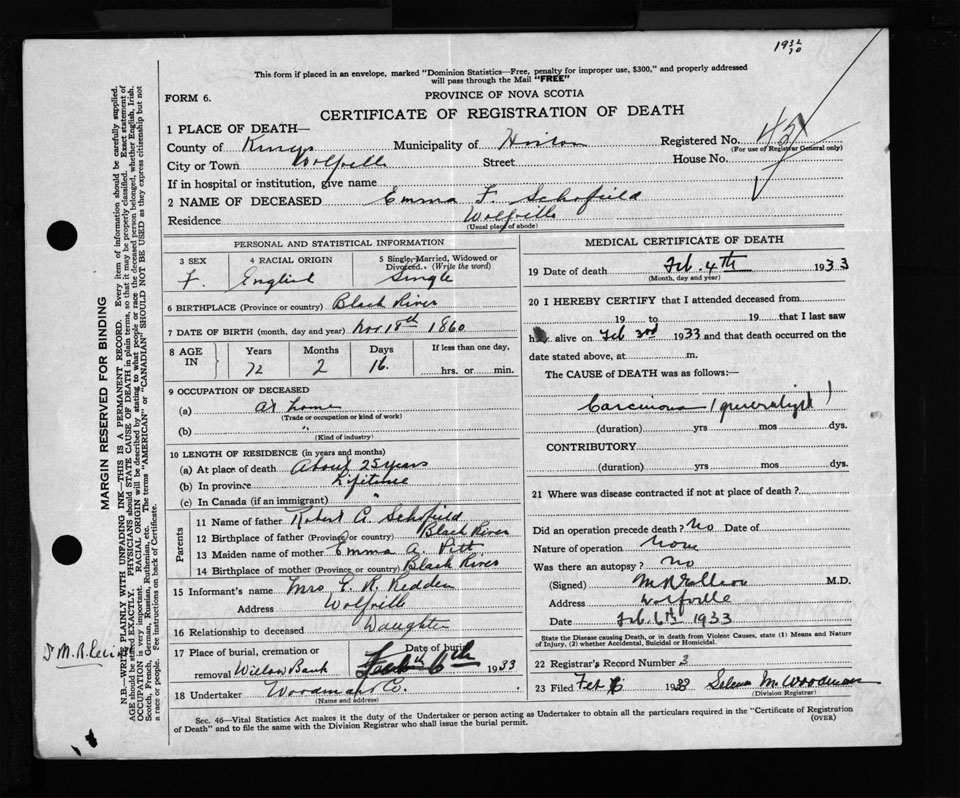 This form if placed in an envelope, marked "Dominion Statistics—Free, penalty for improper use, $300," and properly addressed
will pass through the Mail "FREE"
FORM 6.
PROVINCE OF NOVA SCOTIA
CERTIFICATE OF REGISTRATION OF DEATH
1 PLACE OF DEATH—
County of Kings Municipality of Horton Registered No.
(For use of Registrar General only)
City or Town Wolfville Street House No.
If in hospital or institution, give name
2 NAME OF DECEASED Emma F. Schofield
Residence Wolfville
(Usual place of abode)
PERSONAL AND STATISTICAL INFORMATION
3 SEX 4 RACIAL ORIGIN 5 Single, Married, Widowed or
Divorced. (Write the word)
F. English Single
6 BIRTHPLACE (Province or country) Black River
7 DATE OF BIRTH (month, day and year) Nov 18th 1860
8 AGE IN Years Months Days If less than one day,
72 2 16. hrs. or min.
9 OCCUPATION OF DECEASED
(a) at home
(Trade or occupation or kind of work)
(b) "
(Kind of industry)
10 LENGTH OF RESIDENCE (in years and months)
(a) At place of death About 25 years
(b) In province Lifetime
(c) In Canada (if an immigrant) "
Parents
11 Name of father Robert A. Schofield
12 Birthplace of father (Province or country) Black River
13 Maiden name of mother Emma A. Pitt
14 Birthplace of mother (Province or country) Black River
15 Informant's name Mrs. E. R. Redden
Address Wolfville
16 Relationship to deceased Daughter
17 Place of burial, cremation or Date of burial
removal Willow Bank Feb 6th 1933
18 Undertaker Woodman & Co.
(Name and address)
MEDICAL CERTIFICATE OF DEATH
19 Date of death Feb. 4th 1933
(Month, day and year)
20 I HEREBY CERTIFY that I attended deceased from
19 to 19 that I last saw
h alive on Feb 3rd 1933 and that death occurred on the
date stated above, at m.
The CAUSE of DEATH was as follows:—
Carcinoma (generalized)
(duration) yrs mos dys.
CONTRIBUTORY
(duration) yrs mos dys.
21 Where was disease contracted if not at place of death?
Did an operation precede death? No Date of
Nature of operation None
Was there an autopsy? No
(Signed) M.D.
Address Wolfville
Date Feb. 6th 1933
State the Disease causing Death, or in death from Violent Causes, state (1) Means and Nature
of Injury, (2) whether Accidental, Suicidal or Homicidal.
22 Registrar's Record Number 3
23 Filed Feb 6 1933 Selena M. Woodman
(Division Registrar)
Sec. 46—Vital Statistics Act makes it the duty of the Undertaker or person acting as Undertaker to obtain all the particulars required in the "Certificate of Registration
of Death" and to file the same with the Division Registrar who shall issue the burial permit.
(OVER)
MARGIN RESERVED FOR BINDING
N.B.—WRITE PLAINLY WITH UNFADING INK—THIS IS A PERMANENT RECORD. Every item of information should be carefully supplied.
AGE should be stated EXACTLY. PHYSICIANS should STATE CAUSE OF DEATH in plain terms, so that it may be properly classified. Exact statement of
OCCUPATION is very important. RACIAL ORIGIN will be described by stating to what people or race the deceased person belonged, whether English, Irish,
Scotch, French, German, Russian, Ruthenian, etc. The terms "AMERICAN" or "CANADIAN" SHOULD NOT BE USED as they express citizenship but not
a race or people. See instructions on back of Certificate.